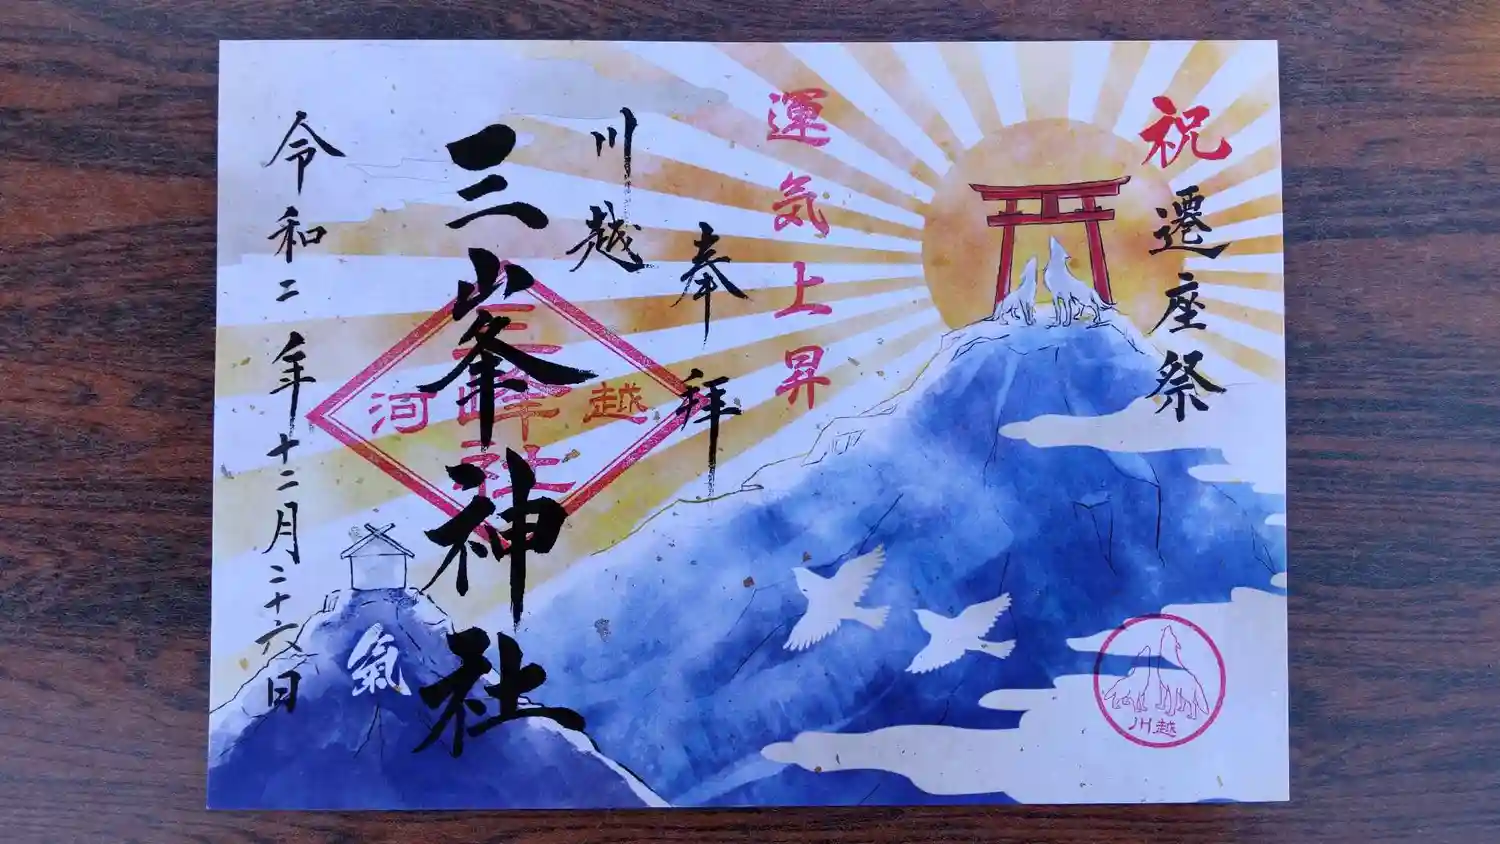 祝 遷座祭
運気上昇
奉拝
川越
三峯神社
令和二年十二月二十六日
三峰社
河越
氣
川越